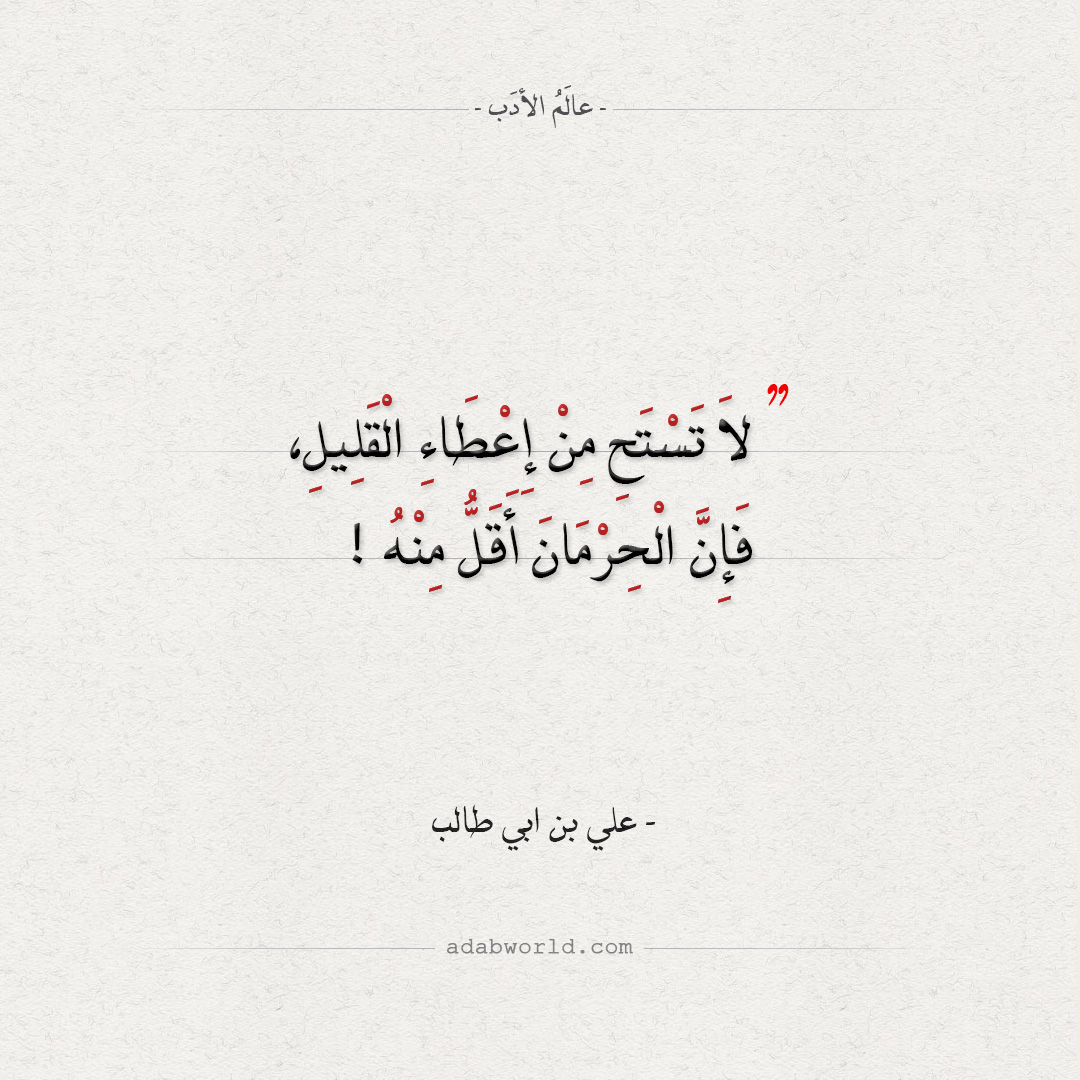 - عالَمُ الأدَب -
” لاَ تَسْتَحِ مِنْ إِعْطَاءِ الْقَلِيلِ،
فَإِنَّ الْحِرْمَانَ أَقَلُّ مِنْهُ !
- علي بن ابي طالب
adabworld.com